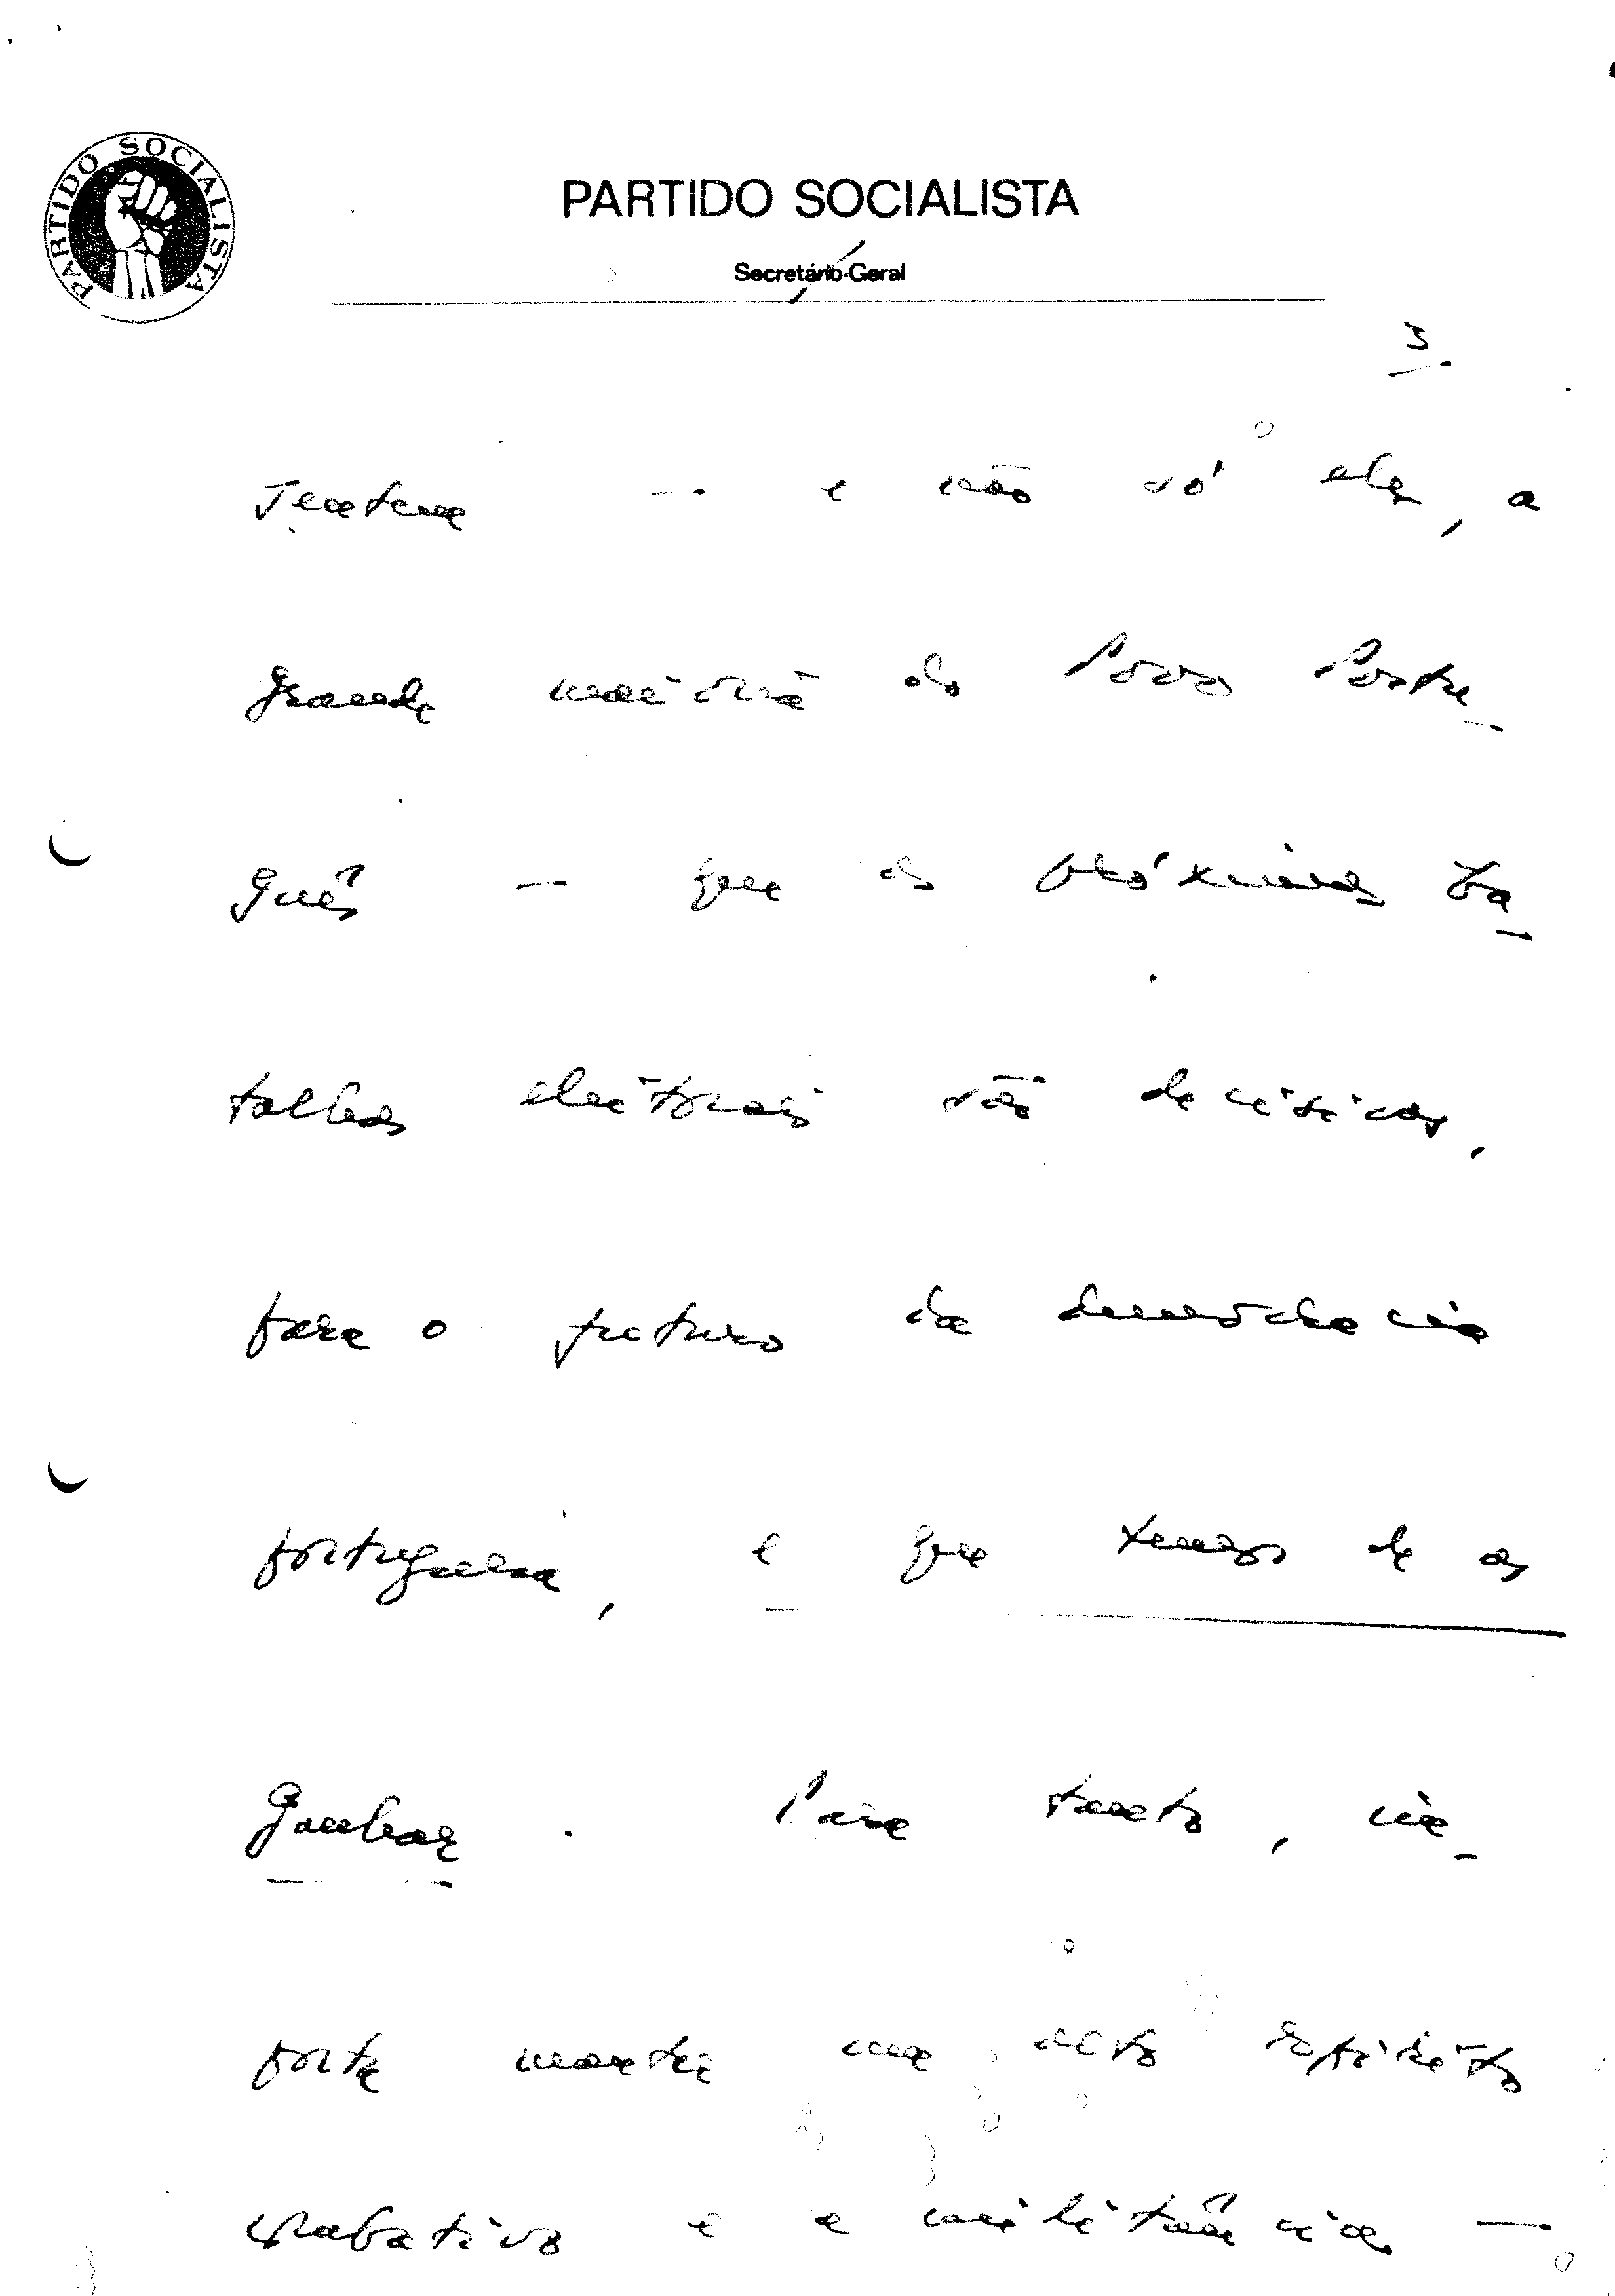 PARTIDO SOCIALISTA
PARTIDO SOCIALISTA
Secretário-Geral
3.
– e não só ela, a
grande maioria do Povo Portu-
guês – que as próximas ba-
talhas eleitorais são decisivas,
para o futuro da democracia
portuguesa, e que temos de as
ganhar. Para tanto, im-
porta manter um alto espírito
combativo e a militância –